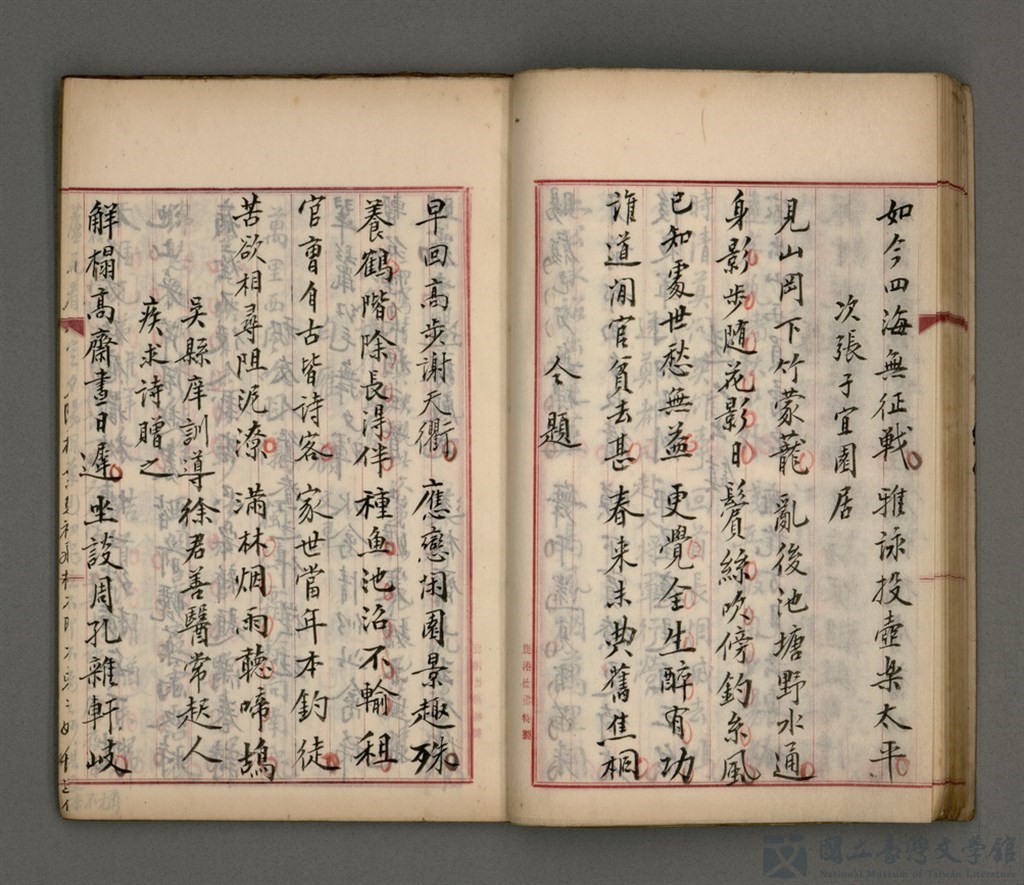 如今四海無征戰 雅詠投壺樂太平
次張子宜園居
見山岡下竹蒙蘢 亂後池塘野水通
身影步随花影日 鬢絲吹傍釣糸風
已知處世愁無益 更覺全生醉有功
誰道閒官貧去甚 春来未典舊焦桐
仝題
早回高步謝天衢 應戀閑園景趣殊
養鶴階除長得伴 種魚池沼不輸租
官曹自古皆詩客 家世當年本釣徒
苦欲相尋阻泥潦 滿林烟雨聽啼鴣
吳縣庠訓導徐君善醫常起人
疾求詩贈之
解榻高齋晝日遲 坐談周孔雜軒岐
國立臺灣文學館
National Museum of Taiwan Literature